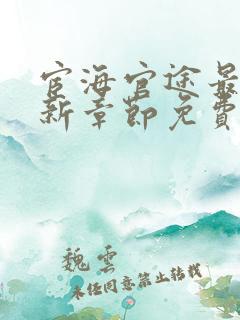 宦海官途最
新章節免費
魏雲
未經同意禁止轉載